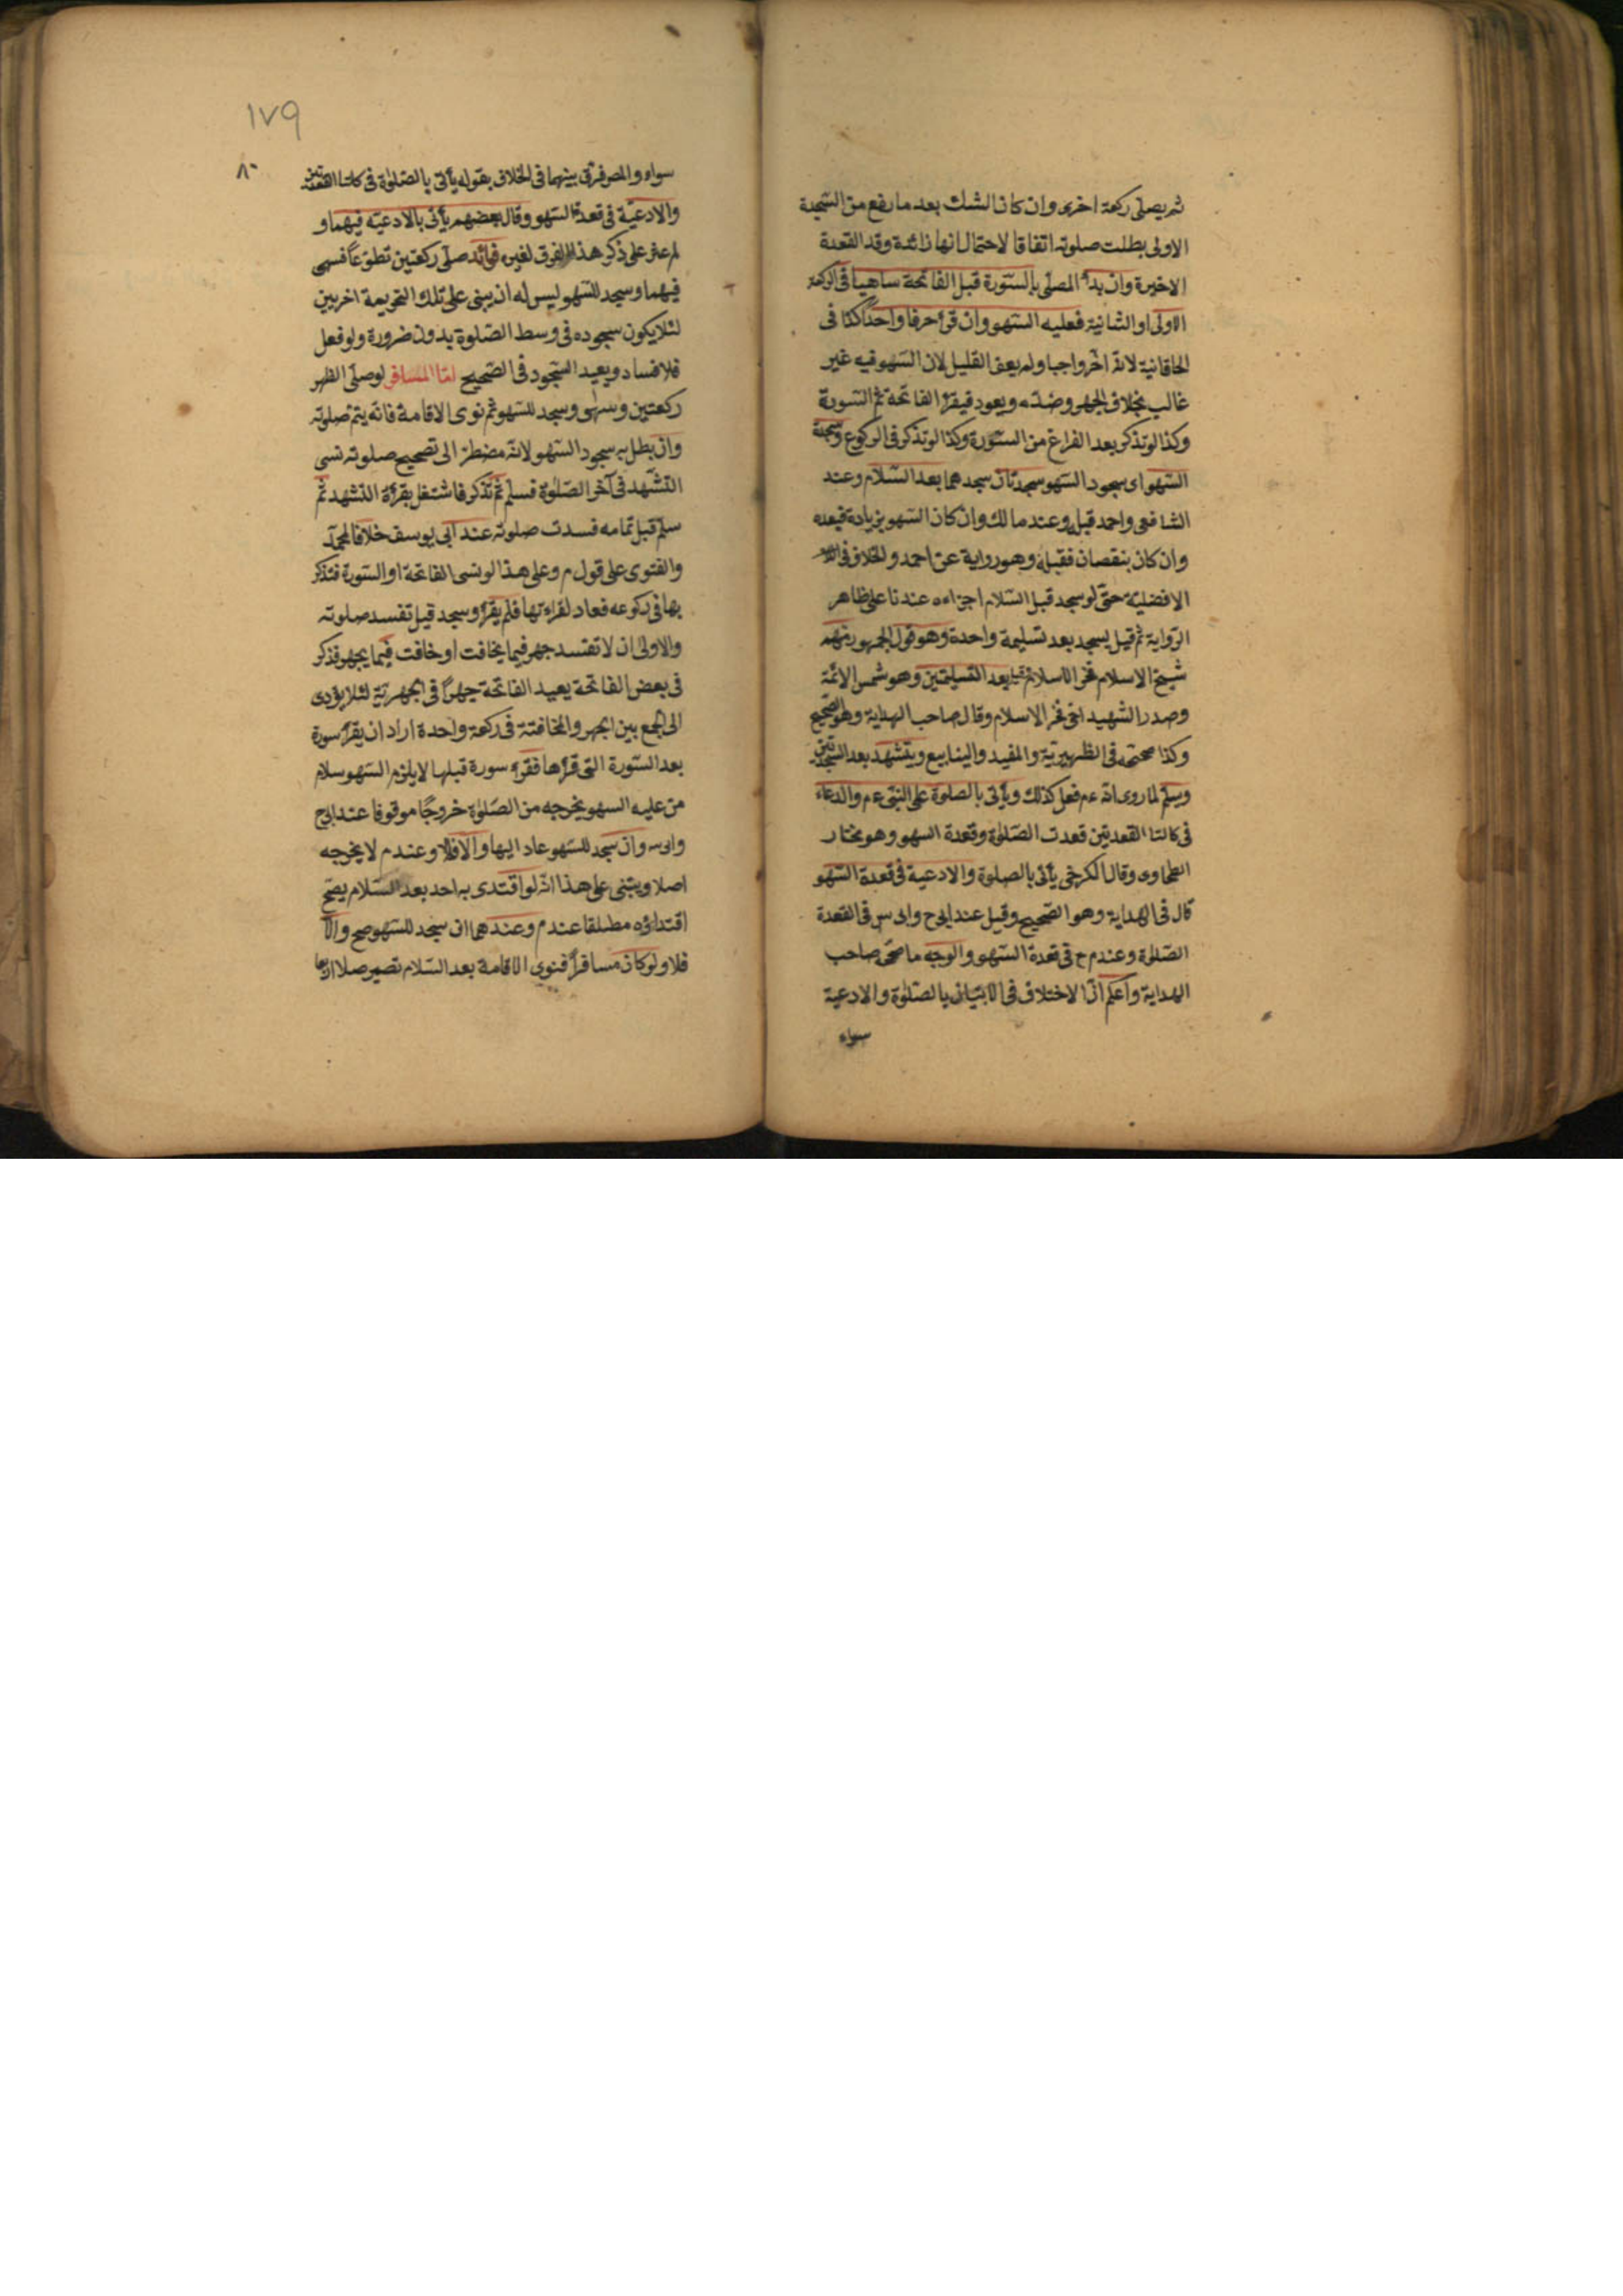 ثم يصلى ركعة اخرى وان كان الشك بعد ما رفع من السّجدة
الاولى بطلت صلوته اتفاقا لاحتمال انها زائدة وقد القعدة
الاخيرة وان بدأ المصلى بالسّورة قبل الفاتحة ساهيا فى الركعة
الاولى او الثانية فعليه السّهو وان قرئ حرفا واحدا كذا فى
الخاقانية لانّه اخّر واجبا ولم يعف القليل لان السّهو فيه غير
غالب بخلاف الجهر وضدّه ويعود فيقرأ الفاتحة ثم السّورة
وكذا لو تذكر بعد الفراغ من السّورة وكذا لو تذكر فى الركوع وسجدة
السّهو اى سجود السّهو سجدتان سجدهما بعد السّلام وعند
الشافعى واحمد قبله وعند مالك وان كان السّهو بزيادة فبعده
وان كان بنقصان فقبله وهو رواية عن احمد والخلاف فى
الافضلية حتّى لو سجد قبل السّلام اجزاءه عندنا على ظاهر
الرّواية ثم قيل يسجد بعد تسليمة واحدة وهو قول الجمهور منهم
شيخ الاسلام فخر الاسلام قيل بعد التسليمتين وهو شمس الائمّة
وصدر الشهيد اخى فخر الاسلام وقال صاحب الهداية وهو الصّحيح
وكذا صححه فى الظهيريّة والمفيد والينابيع ويتشهد بعد السّجدتين
ويسلّم لما روى انّه ءم فعل كذلك ويأتى بالصلوة على النّبى ءم والدعاء
فى كالتا القعدتين قعدت الصّلوة وقعدة السهو وهو مختار
الطحاوى وقال الكرخى يأتى بالصلوة والادعية فى قعدة السّهو
قال فى الهداية وهو الصّحيح وقيل عند ابى ح وابى س فى القعدة
الصّلوة وعند م ح فى قعدة السّهو والوجه ما صحّ صاحب
الهداية واعلم انّ الاختلاف فى الايتيان بالصّلوة والادعية
سواء
١٧٩
٨٠
سواء والمص فرق بينهما فى الخلاف بقوله يأتى بالصّلوة فى كلتا القعدتين
والادعيّة فى قعدة السّهو وقال بعضهم يأتى بالادعيّة فيهما و
لم عثر على ذكر هذا الفرق لغيره فائد صلّى ركعتين تطوّعا فسهى
فيهما وسجد للسّهو ليس له ان يبنى على تلك التحريمة اخريين
لئلا يكون سجوده فى وسط الصّلوة بدون ضرورة ولو فعل
فلا فساد ويعيد السّجود فى الصّحيح امّا المسافر لو صلّى الظهر
ركعتين وسهى وسجد للسّهو ثم نوى الاقامة فانّه يتم صلوته
وان بطل به سجود السّهو لانّه مضطرّ الى تصحيح صلوته نسى
التشّهد فى آخر الصّلوة فسلّم ثم تذكر فاشتغل بقرأة التشهد ثم
سلّم قبل تمامه فسدت صلوته عند ابى يوسف خلافا لمحمّد
والفتوى على قول م وعلى هذا لو نسى الفاتحة او السّورة فتذكر
بها فى ركوعه فعاد لقراءتها فلم يقرأ وسجد قيل تفسد صلوته
والاولى ان لا تفتسد جهر فيما يخافت او خافت فيما يجهر فذكر
فى بعض الفاتحة يعيد الفاتحة جهرا فى الجهريّة لئلا يؤدى
الى الجمع بين الجهر والمخافتة فى ركعة واحدة اراد ان يقرأ سورة
بعد السّورة التى قرأها فقرء سورة قبلها لا يلزم السّهو سلام
من عليه السهو يخرجه من الصّلوة خروجا موقوفا عند ابى ح
وابى س وان سجد للسّهو عاد اليها والّا فلا وعند م لا يخرجه
اصلا ويبتنى على هذا انّه لو اقتدى به احد بعد السّلام يصّح
اقتداؤه مطلقا عند م وعندهما ان سجد للسّهو صح والّا
فلا ولو كان مسافرا فنوى الاقامة بعد السّلام تصير صلا اربعا